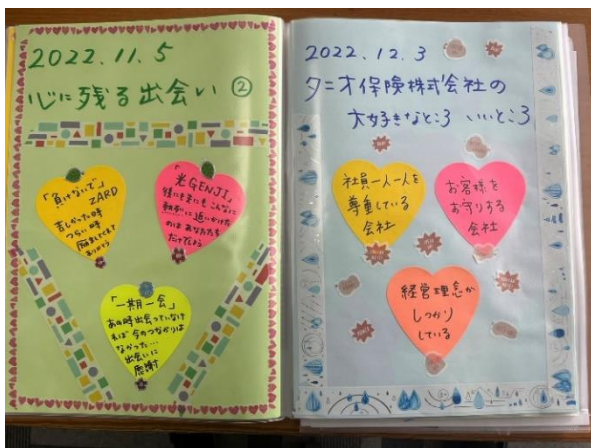 2022.11.5
心に残る出会い ②
「負けないで」
ZARD
苦しかった時
つらい時
励ましてくれて
ありがとう
「光GENJI」
後にも先にもこんなに
熱心に追いかけた
のはあなたたち
だけでした
「一期一会」
あの時出会っていなけ
れば今のつながりは
なかった…
出会いに
感謝
2022.12.3
タニオ保険株式会社の
大好きなところ いいところ
社員一人一人を
尊重している
会社
お客様を
お守りする
会社
経営理念が
しっかり
している